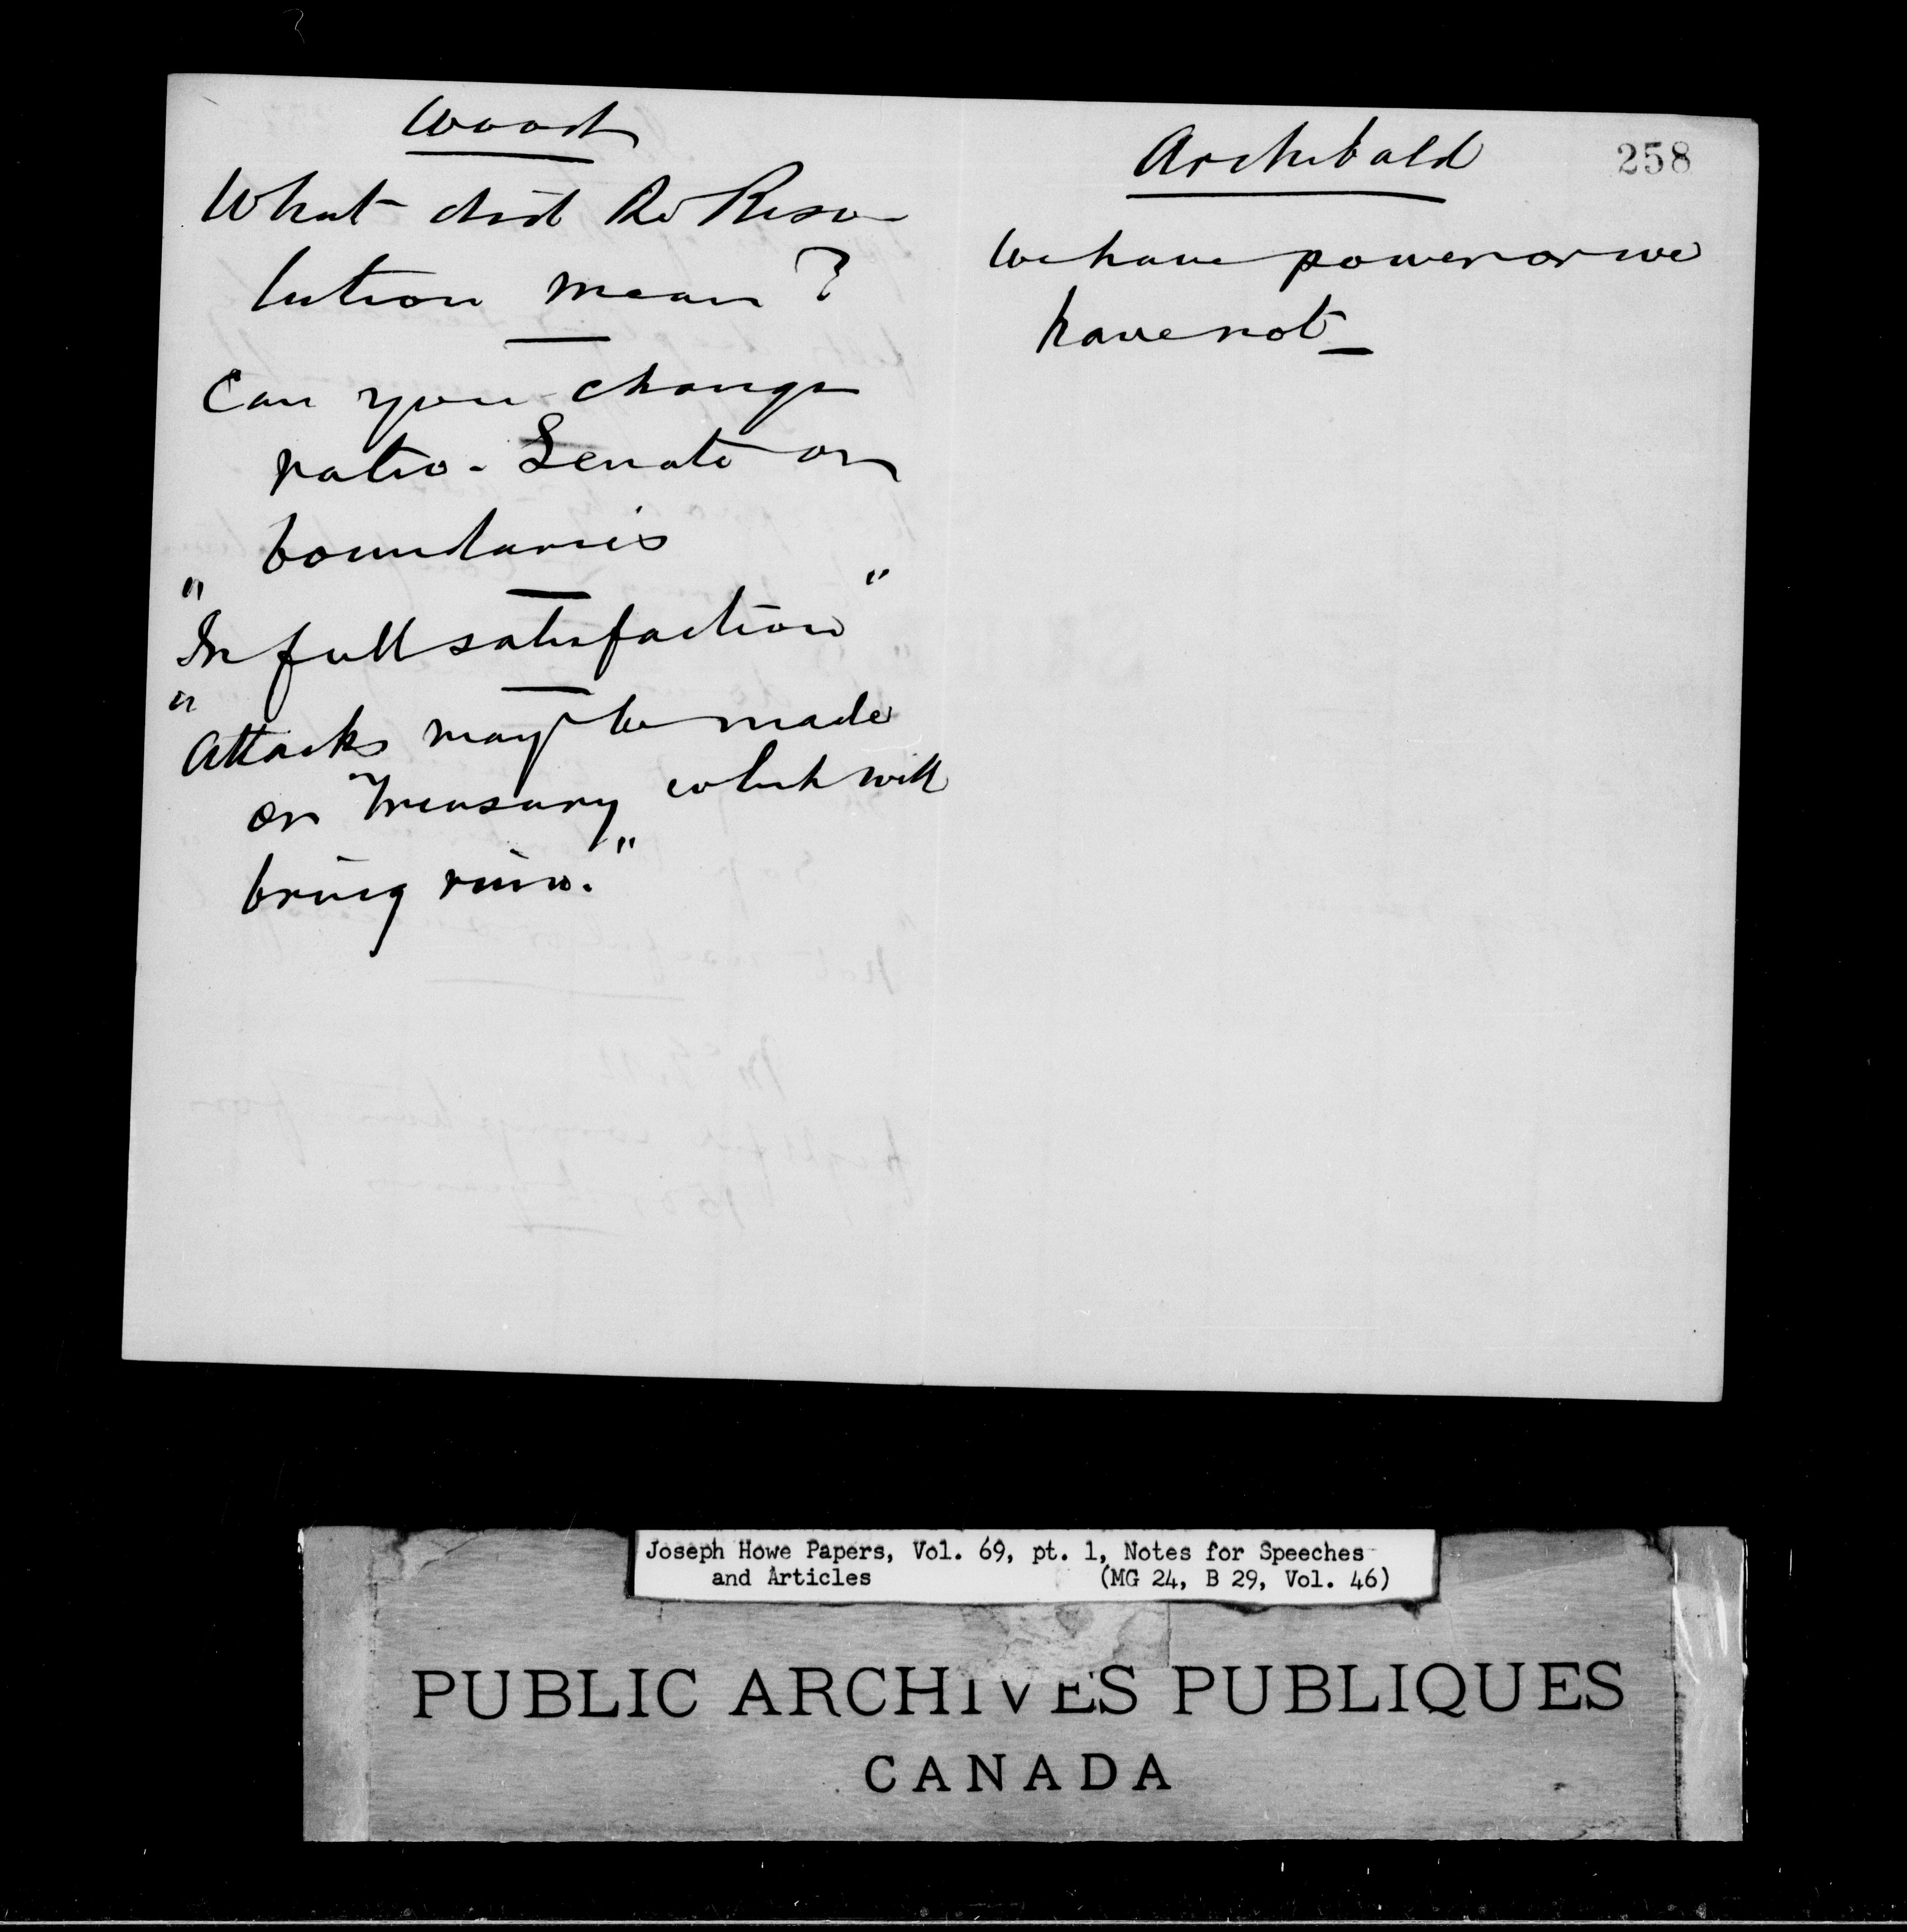 Wood
What did the Reso
lution mean?
Can you change
ratio - Senate or
boundaries
"In full satisfaction"
"Attacks may be made
on Treasury which will
bring ruin."
Archibald
258
We have power or we
have not
Joseph Howe Papers, Vol. 69, pt. 1, Notes for Speeches
and Articles (MG 24, B 29, Vol. 46)
PUBLIC ARCHIVES PUBLIQUES
CANADA